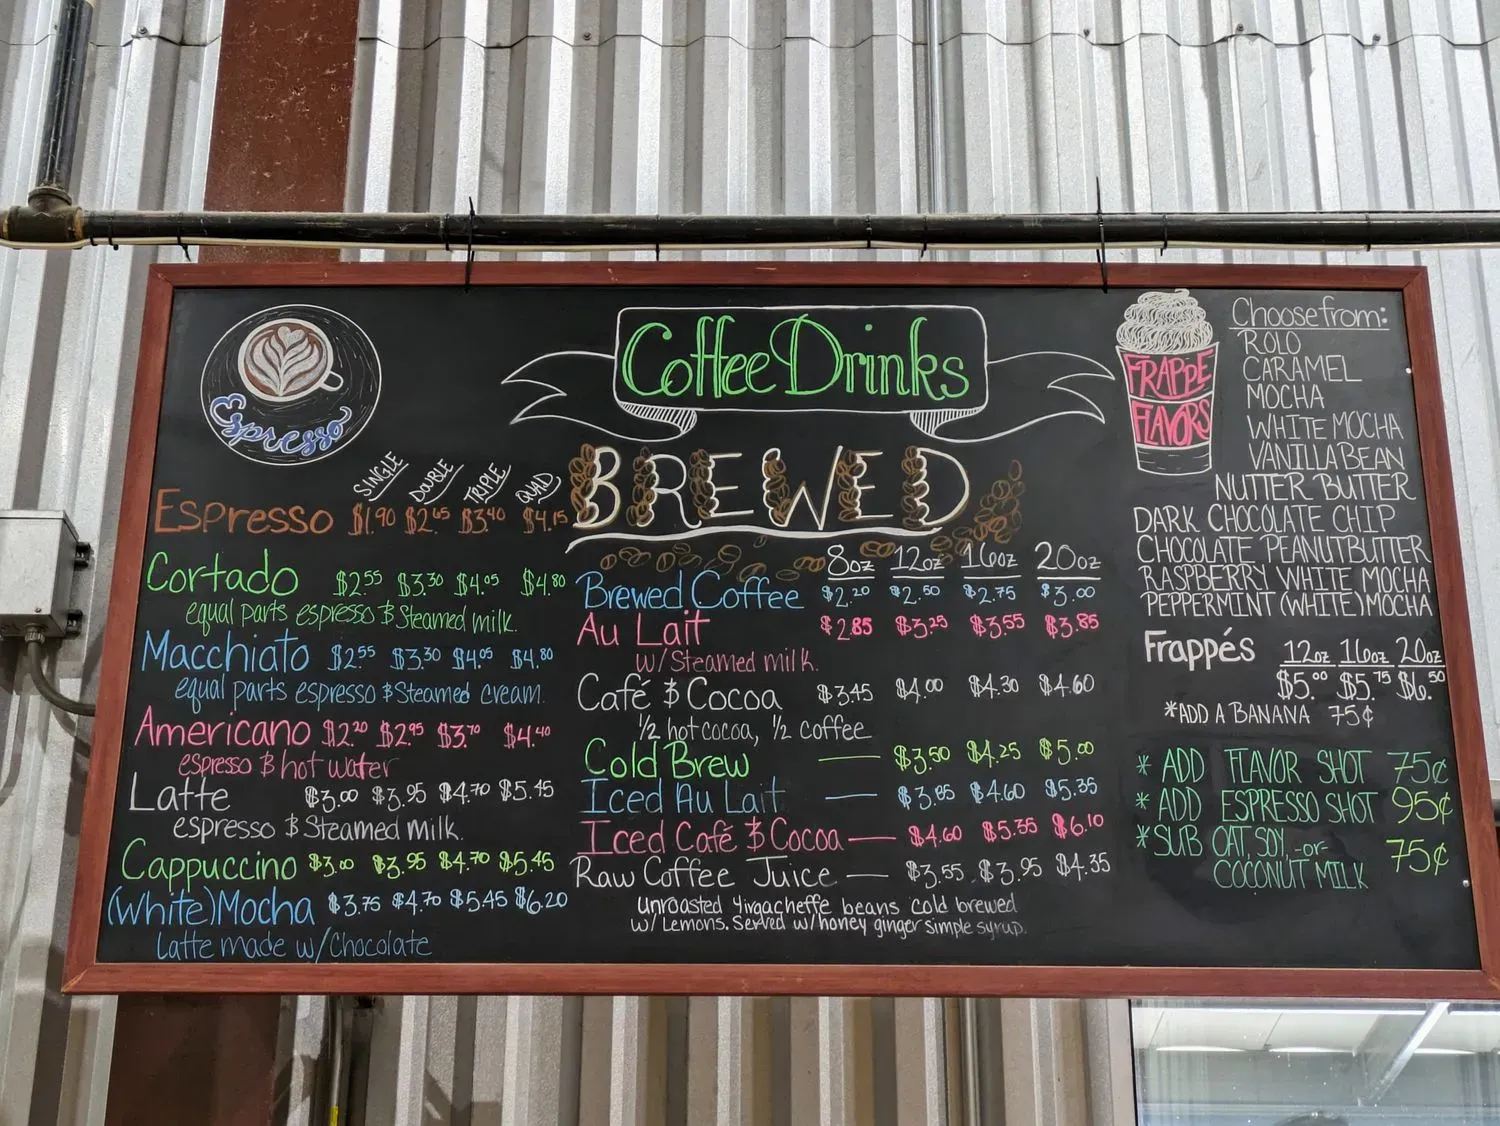 Espresso
SINGLE DOUBLE TRIPLE QUAD
Espresso $1.90 $2.65 $3.40 $4.15
Cortado $2.55 $3.30 $4.05 $4.80
equal parts espresso & Steamed milk.
Macchiato $2.55 $3.30 $4.05 $4.80
equal parts espresso & Steamed cream.
Americano $2.20 $2.95 $3.70 $4.40
espresso & hot water
Latte $3.00 $3.95 $4.70 $5.45
espresso & Steamed milk.
Cappuccino $3.00 $3.95 $4.70 $5.45
(White) Mocha $3.75 $4.70 $5.45 $6.20
Latte made w/Chocolate
Coffee Drinks
BREWED
8oz 12oz 16oz 20oz
Brewed Coffee $2.20 $2.50 $2.75 $3.00
Au Lait $2.85 $3.25 $3.55 $3.85
w/Steamed milk.
Café & Cocoa $3.45 $4.00 $4.30 $4.60
½ hot cocoa, ½ coffee
Cold Brew — $3.50 $4.25 $5.00
Iced Au Lait — $3.85 $4.60 $5.35
Iced Café & Cocoa — $4.60 $5.35 $6.10
Raw Coffee Juice — $3.55 $3.95 $4.35
Unroasted Yirgacheffe beans cold brewed
w/ Lemons. Served w/ honey ginger simple syrup.
FRAPPE
FLAVORS
Choose from:
ROLO
CARAMEL
MOCHA
WHITE MOCHA
VANILLA BEAN
NUTTER BUTTER
DARK CHOCOLATE CHIP
CHOCOLATE PEANUTBUTTER
RASPBERRY WHITE MOCHA
PEPPERMINT (WHITE) MOCHA
Frappés 12oz 16oz 20oz
$5.00 $5.75 $6.50
*ADD A BANANA 75¢
* ADD FLAVOR SHOT 75¢
* ADD ESPRESSO SHOT 95¢
*SUB OAT, SOY, -or-
COCONUT MILK 75¢